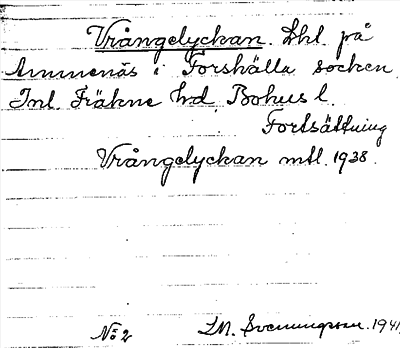 Vrångelyckan. Lhl. på
Ammenäs i Forshälla socken
Inl. Fräkne hd, Bohus l.
Fortsättning
Vrångelyckan mtl. 1938.
No: 2 I.M. Svenungsson. 1941